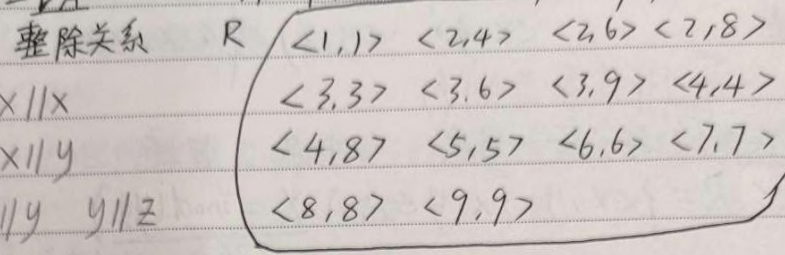 整除关系 R <1,1> <2,4> <2,6> <2,8>
x//x <3,3> <3.6> <3,9> <4,4>
x//y <4,8> <5,5> <6,6> <7.7>
//y y//z <8,8> <9,9>